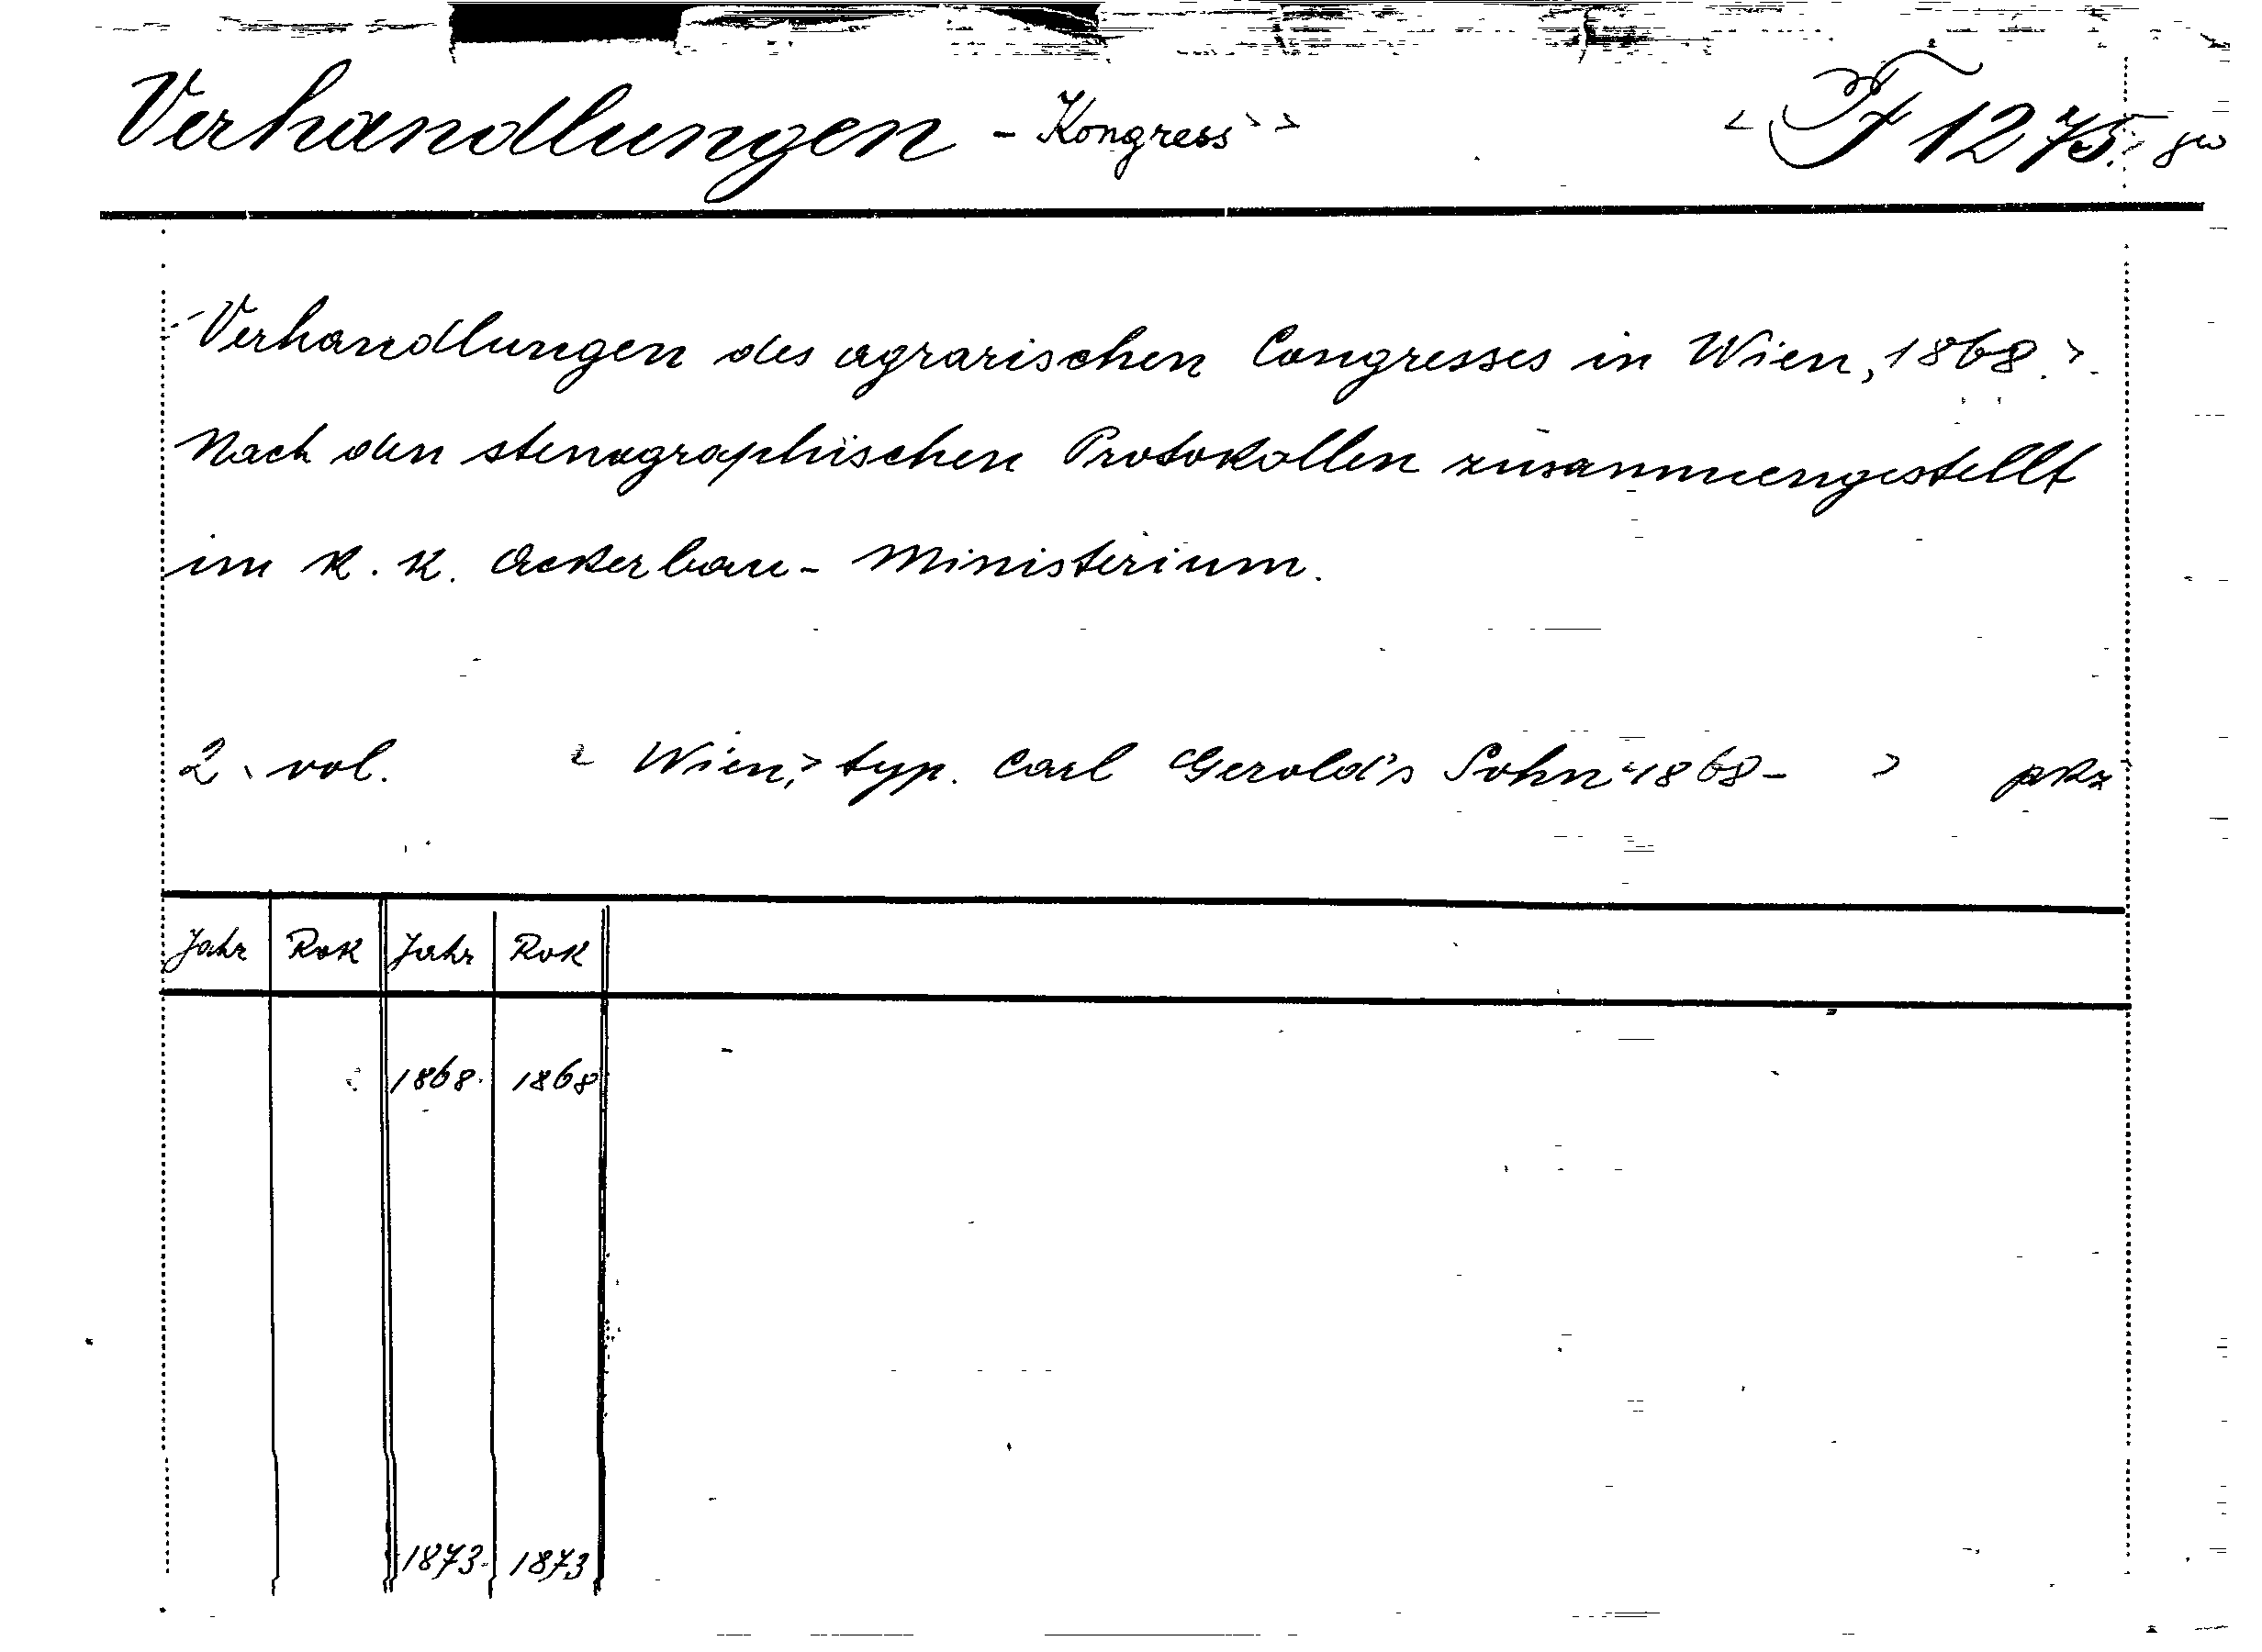 Verhandlungen - Kongress F 1275.
Verhandlungen des agrarischen Congresses in Wien, 1868.
Nach den stenographischen Protokollen zusammengestellt
im k. k. Ackerbau - Ministerium.
2 vol. Wien, typ. Carl Gerold's Sohn 1868-
Jahr Rok Jahr Rok
1868 1868
1873 1873